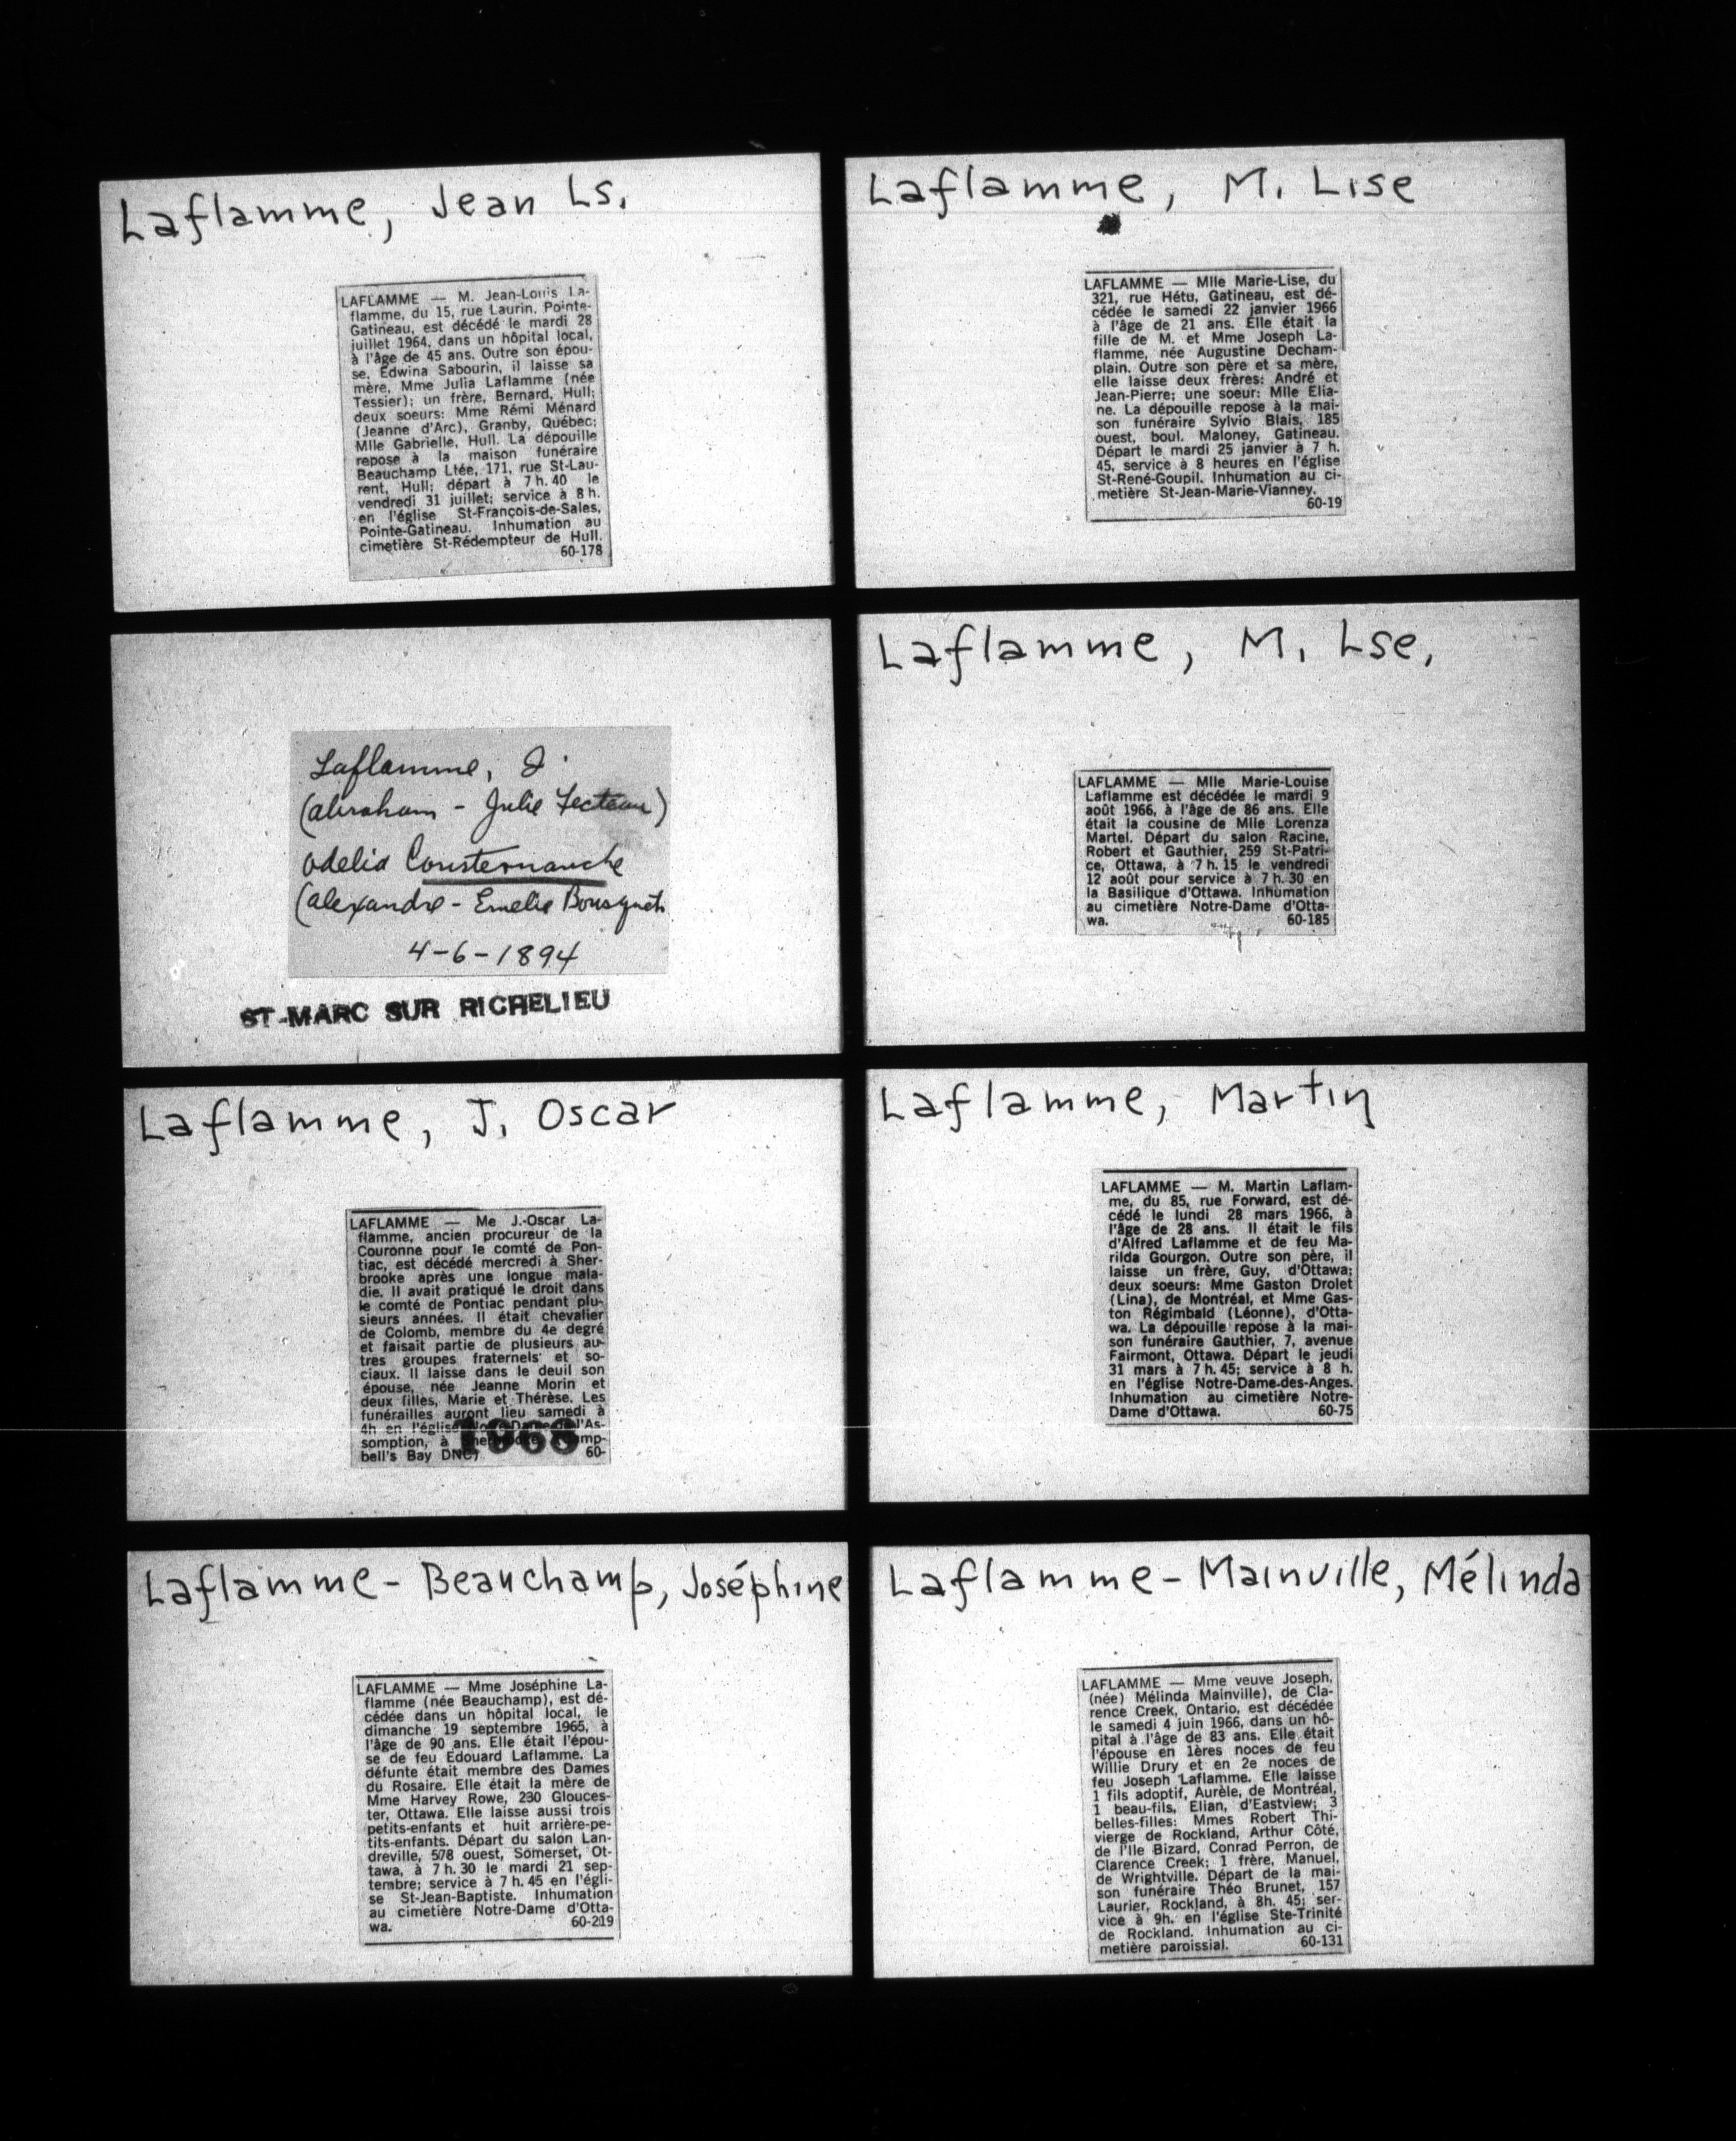 Laflamme, Jean Ls.
LAFLAMME — M. Jean-Louis La-
flamme, du 15, rue Laurin, Pointe-
Gatineau, est décédé le mardi 28
juillet 1964, dans un hôpital local,
à l'âge de 45 ans. Outre son épou-
se, Edwina Sabourin, il laisse sa
mère, Mme Julia Laflamme (née
Tessier); un frère, Bernard, Hull;
deux soeurs: Mme Rémi Ménard
(Jeanne d'Arc), Granby, Québec;
Mlle Gabrielle, Hull. La dépouille
repose à la maison funéraire
Beauchamp Ltée, 171, rue St-Lau-
rent, Hull; départ à 7 h. 40 le
vendredi 31 juillet; service à 8 h.
en l'église St-François-de-Sales,
Pointe-Gatineau. Inhumation au
cimetière St-Rédempteur de Hull.
60-178
Laflamme, M. Lise
LAFLAMME — Mlle Marie-Lise, du
321, rue Hétu, Gatineau, est dé-
cédée le samedi 22 janvier 1966
à l'âge de 21 ans. Elle était la
fille de M. et Mme Joseph La-
flamme, née Augustine Decham-
plain. Outre son père et sa mère,
elle laisse deux frères: André et
Jean-Pierre; une soeur: Mlle Elia-
ne. La dépouille repose à la mai-
son funéraire Sylvio Blais, 185
ouest, boul. Maloney, Gatineau.
Départ le mardi 25 janvier à 7 h.
45, service à 8 heures en l'église
St-René-Goupil. Inhumation au ci-
metière St-Jean-Marie-Vianney.
60-19
Laflamme, J.
(Abraham - Julie Fecteau)
Odelia Coursternanche
(Alexandre - Emelie Bousquet
4-6-1894
ST-MARC SUR RICHELIEU
Laflamme, M. Lse.
LAFLAMME — Mlle Marie-Louise
Laflamme est décédée le mardi 9
août 1966, à l'âge de 86 ans. Elle
était la cousine de Mlle Lorenza
Martel. Départ du salon Racine,
Robert et Gauthier, 259 St-Patri-
ce, Ottawa, à 7 h. 15 le vendredi
12 août pour service à 7 h. 30 en
la Basilique d'Ottawa. Inhumation
au cimetière Notre-Dame d'Otta-
wa. 60-185
Laflamme, J. Oscar
LAFLAMME — Me J.-Oscar La-
flamme, ancien procureur de la
Couronne pour le comté de Pon-
tiac, est décédé mercredi à Sher-
brooke après une longue mala-
die. Il avait pratiqué le droit dans
le comté de Pontiac pendant plu-
sieurs années. Il était chevalier
de Colomb, membre du 4e degré
et faisait partie de plusieurs au-
tres groupes fraternels et so-
ciaux. Il laisse dans le deuil son
épouse, née Jeanne Morin et
deux filles, Marie et Thérèse. Les
funérailles auront lieu samedi à
4h en l'église Notre-Dame de l'As-
somption, à Sherbrooke. (Camp-
bell's Bay DNC) 60-
1968
Laflamme, Martin
LAFLAMME — M. Martin Laflam-
me, du 85, rue Forward, est dé-
cédé le lundi 28 mars 1966, à
l'âge de 28 ans. Il était le fils
d'Alfred Laflamme et de feu Ma-
rilda Gourgon. Outre son père, il
laisse un frère, Guy, d'Ottawa;
deux soeurs: Mme Gaston Drolet
(Lina), de Montréal, et Mme Gas-
ton Régimbald (Léonne), d'Otta-
wa. La dépouille repose à la mai-
son funéraire Gauthier, 7, avenue
Fairmont, Ottawa. Départ le jeudi
31 mars à 7 h. 45; service à 8 h.
en l'église Notre-Dame-des-Anges.
Inhumation au cimetière Notre-
Dame d'Ottawa. 60-75
Laflamme-Beauchamp, Joséphine
LAFLAMME — Mme Joséphine La-
flamme (née Beauchamp), est dé-
cédée dans un hôpital local, le
dimanche 19 septembre 1965, à
l'âge de 90 ans. Elle était l'épou-
se de feu Edouard Laflamme. La
défunte était membre des Dames
du Rosaire. Elle était la mère de
Mme Harvey Rowe, 230 Glouces-
ter, Ottawa. Elle laisse aussi trois
petits-enfants et huit arrière-pe-
tits-enfants. Départ du salon Lan-
dreville, 578 ouest, Somerset, Ot-
tawa, à 7 h. 30 le mardi 21 sep-
tembre; service à 7 h. 45 en l'égli-
se St-Jean-Baptiste. Inhumation
au cimetière Notre-Dame d'Otta-
wa. 60-219
Laflamme-Mainville, Mélinda
LAFLAMME — Mme veuve Joseph,
(née) Mélinda Mainville), de Cla-
rence Creek, Ontario, est décédée
le samedi 4 juin 1966, dans un hô-
pital à l'âge de 83 ans. Elle était
l'épouse en 1ères noces de feu
Willie Drury et en 2e noces de
feu Joseph Laflamme. Elle laisse
1 fils adoptif, Aurèle, de Montréal,
1 beau-fils, Elian, d'Eastview; 3
belles-filles: Mmes Robert Thi-
vierge de Rockland, Arthur Côté,
de l'Ile Bizard, Conrad Perron, de
Clarence Creek; 1 frère, Manuel,
de Wrightville. Départ de la mai-
son funéraire Théo Brunet, 157
Laurier, Rockland, à 8h. 45; ser-
vice à 9h. en l'église Ste-Trinité
de Rockland. Inhumation au ci-
metière paroissial. 60-131